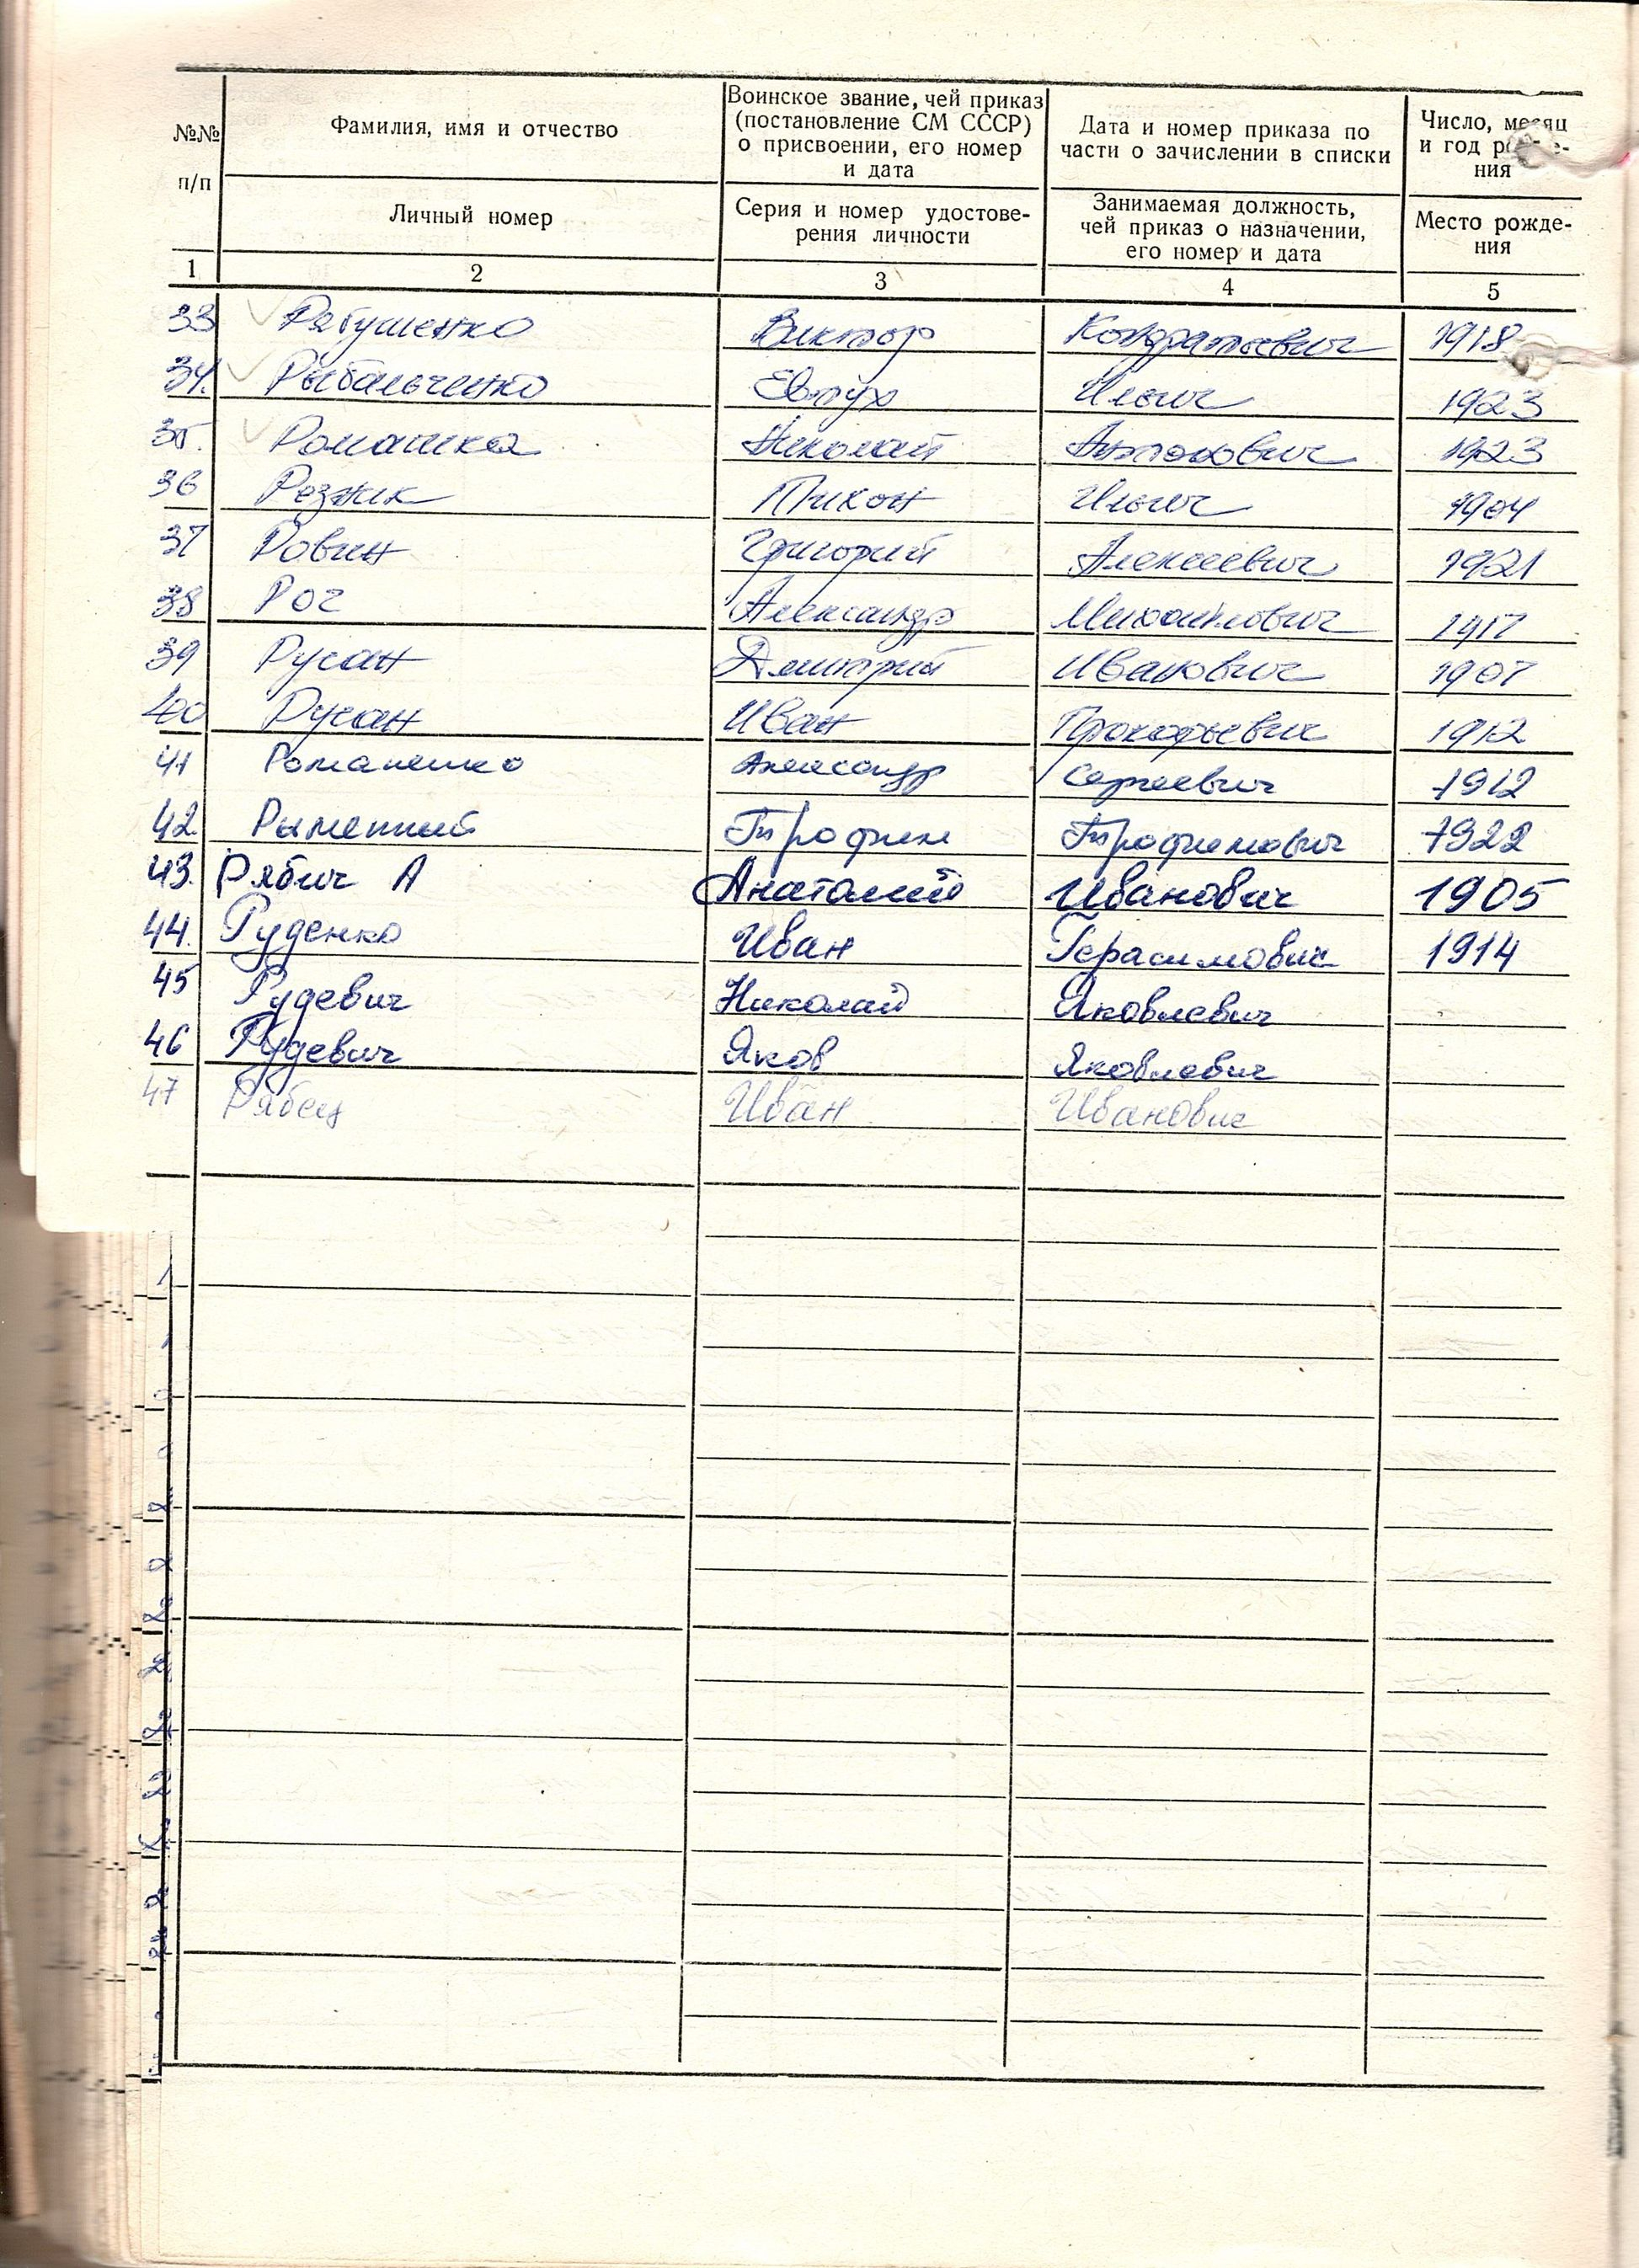 №№ п/п
Фамилия, имя и отчество
Личный номер
Воинское звание, чей приказ
(постановление СМ СССР)
о присвоении, его номер
и дата
Серия и номер удостове-
рения личности
Дата и номер приказа по
части о зачислении в списки
Занимаемая должность,
чей приказ о назначении,
его номер и дата
Число, месяц
и год рожде-
ния
Место рожде-
ния
1 2 3 4 5
33 Рябушенко Виктор Кондратьевич 1918
34. Рыбальченко Евтух Ильич 1923
35. Ромашка Николай Антонович 1923
36 Резник Тихон Ильич 1904
37 Ровин Григорий Алексеевич 1921
38 Рог Александр Михайлович 1917
39 Русан Дмитрий Иванович 1907
40 Русан Иван Прокофьевич 1912
41 Романенко Александр Сергеевич 1912
42. Трофим Трофимович 1922
43. Рябич А Анатолий Иванович 1905
44. Руденко Иван Герасимович 1914
45 Рудевич Николай Яковлевич
46 Рудевич Яков Яковлевич
47 Рябец Иван Иванович